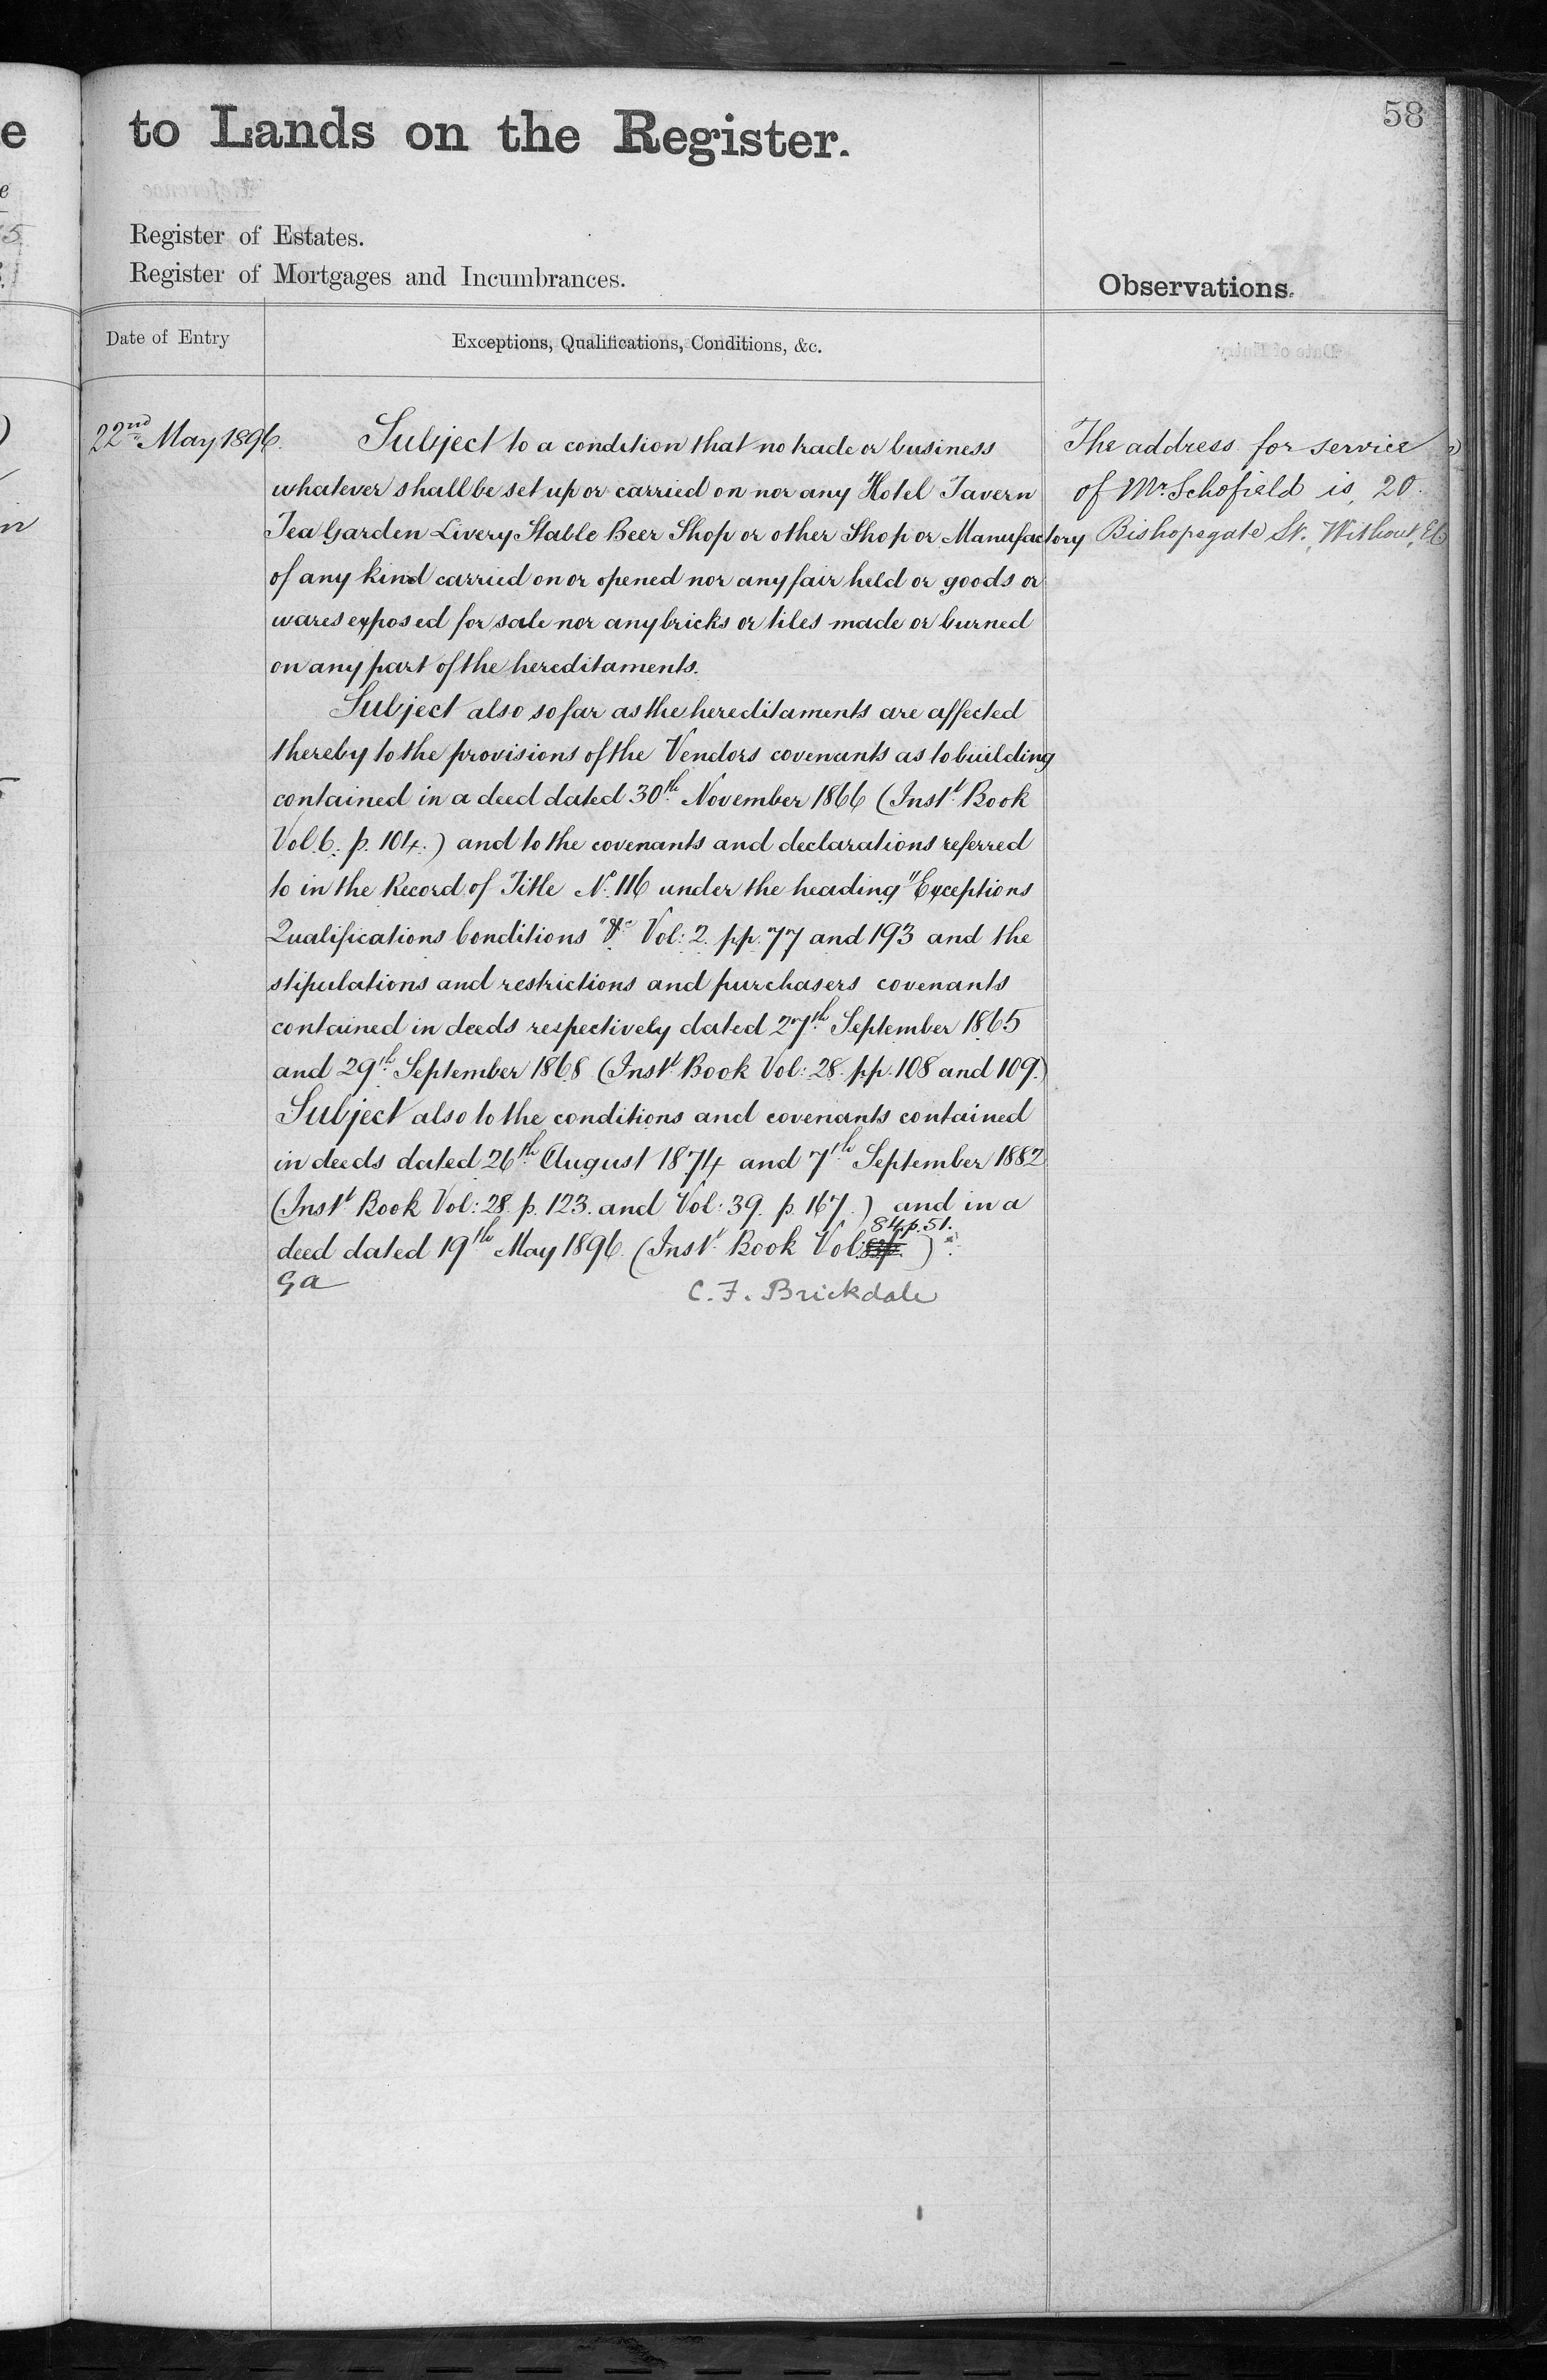 58
to Lands on the Register.
Register of Estates.
Register of Mortgages and Incumbrances.
Observations.
Date of Entry
Exceptions, Qualifications, Conditions, &c.
22nd May 1896.
Subject to a condition that no trade or business
whatever shall be set up or carried on nor any Hotel Tavern
Tea Garden Livery Stable Beer Shop or other Shop or Manufactory
of any kind carried on or opened nor any fair held or goods or
wares exposed for sale nor any bricks or tiles made or burned
on any part of the hereditaments.
Subject also so far as the hereditaments are affected
thereby to the provisions of the Vendors covenants as to building
contained in a deed dated 30th November 1866 (Inst Book
Vol. 6. p. 104.) and to the covenants and declarations referred
to in the Record of Title No. 116 under the heading "Exceptions
Qualifications Conditions &c" Vol: 2. pp. 77 and 193 and the
stipulations and restrictions and purchasers covenants
contained in deeds respectively dated 27th September 1865
and 29th September 1868 (Inst Book Vol: 28. pp. 108 and 109.)
Subject also to the conditions and covenants contained
in deeds dated 26th August 1874 and 7th September 1882
(Inst Book Vol: 28. p. 123. and Vol: 39. p. 167.) and in a
84. p. 51.
deed dated 19th May 1896. (Inst Book Vol: )
Ga
C. F. Brickdale
The address for service
of Mr. Schofield is, 20.
Bishopsgate St. Without, EC